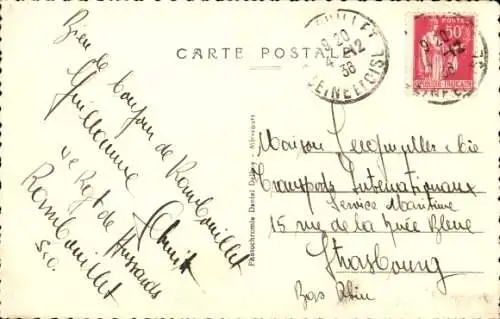 CARTE POSTALE
RAMBOUILLET
9 20
2-12
36
SEINE ET OISE
POSTES
50c
REPUBLIQUE FRANÇAISE
Bien le bonjour de Rambouillet
Guillaume
4e Regt de Hussards
Rambouillet
S.O.
Photochromie Daniel
Maison & Cie
Transports Internationaux
Service Maritime
15 rue de la Nuée Bleue
Strasbourg
Bas Rhin